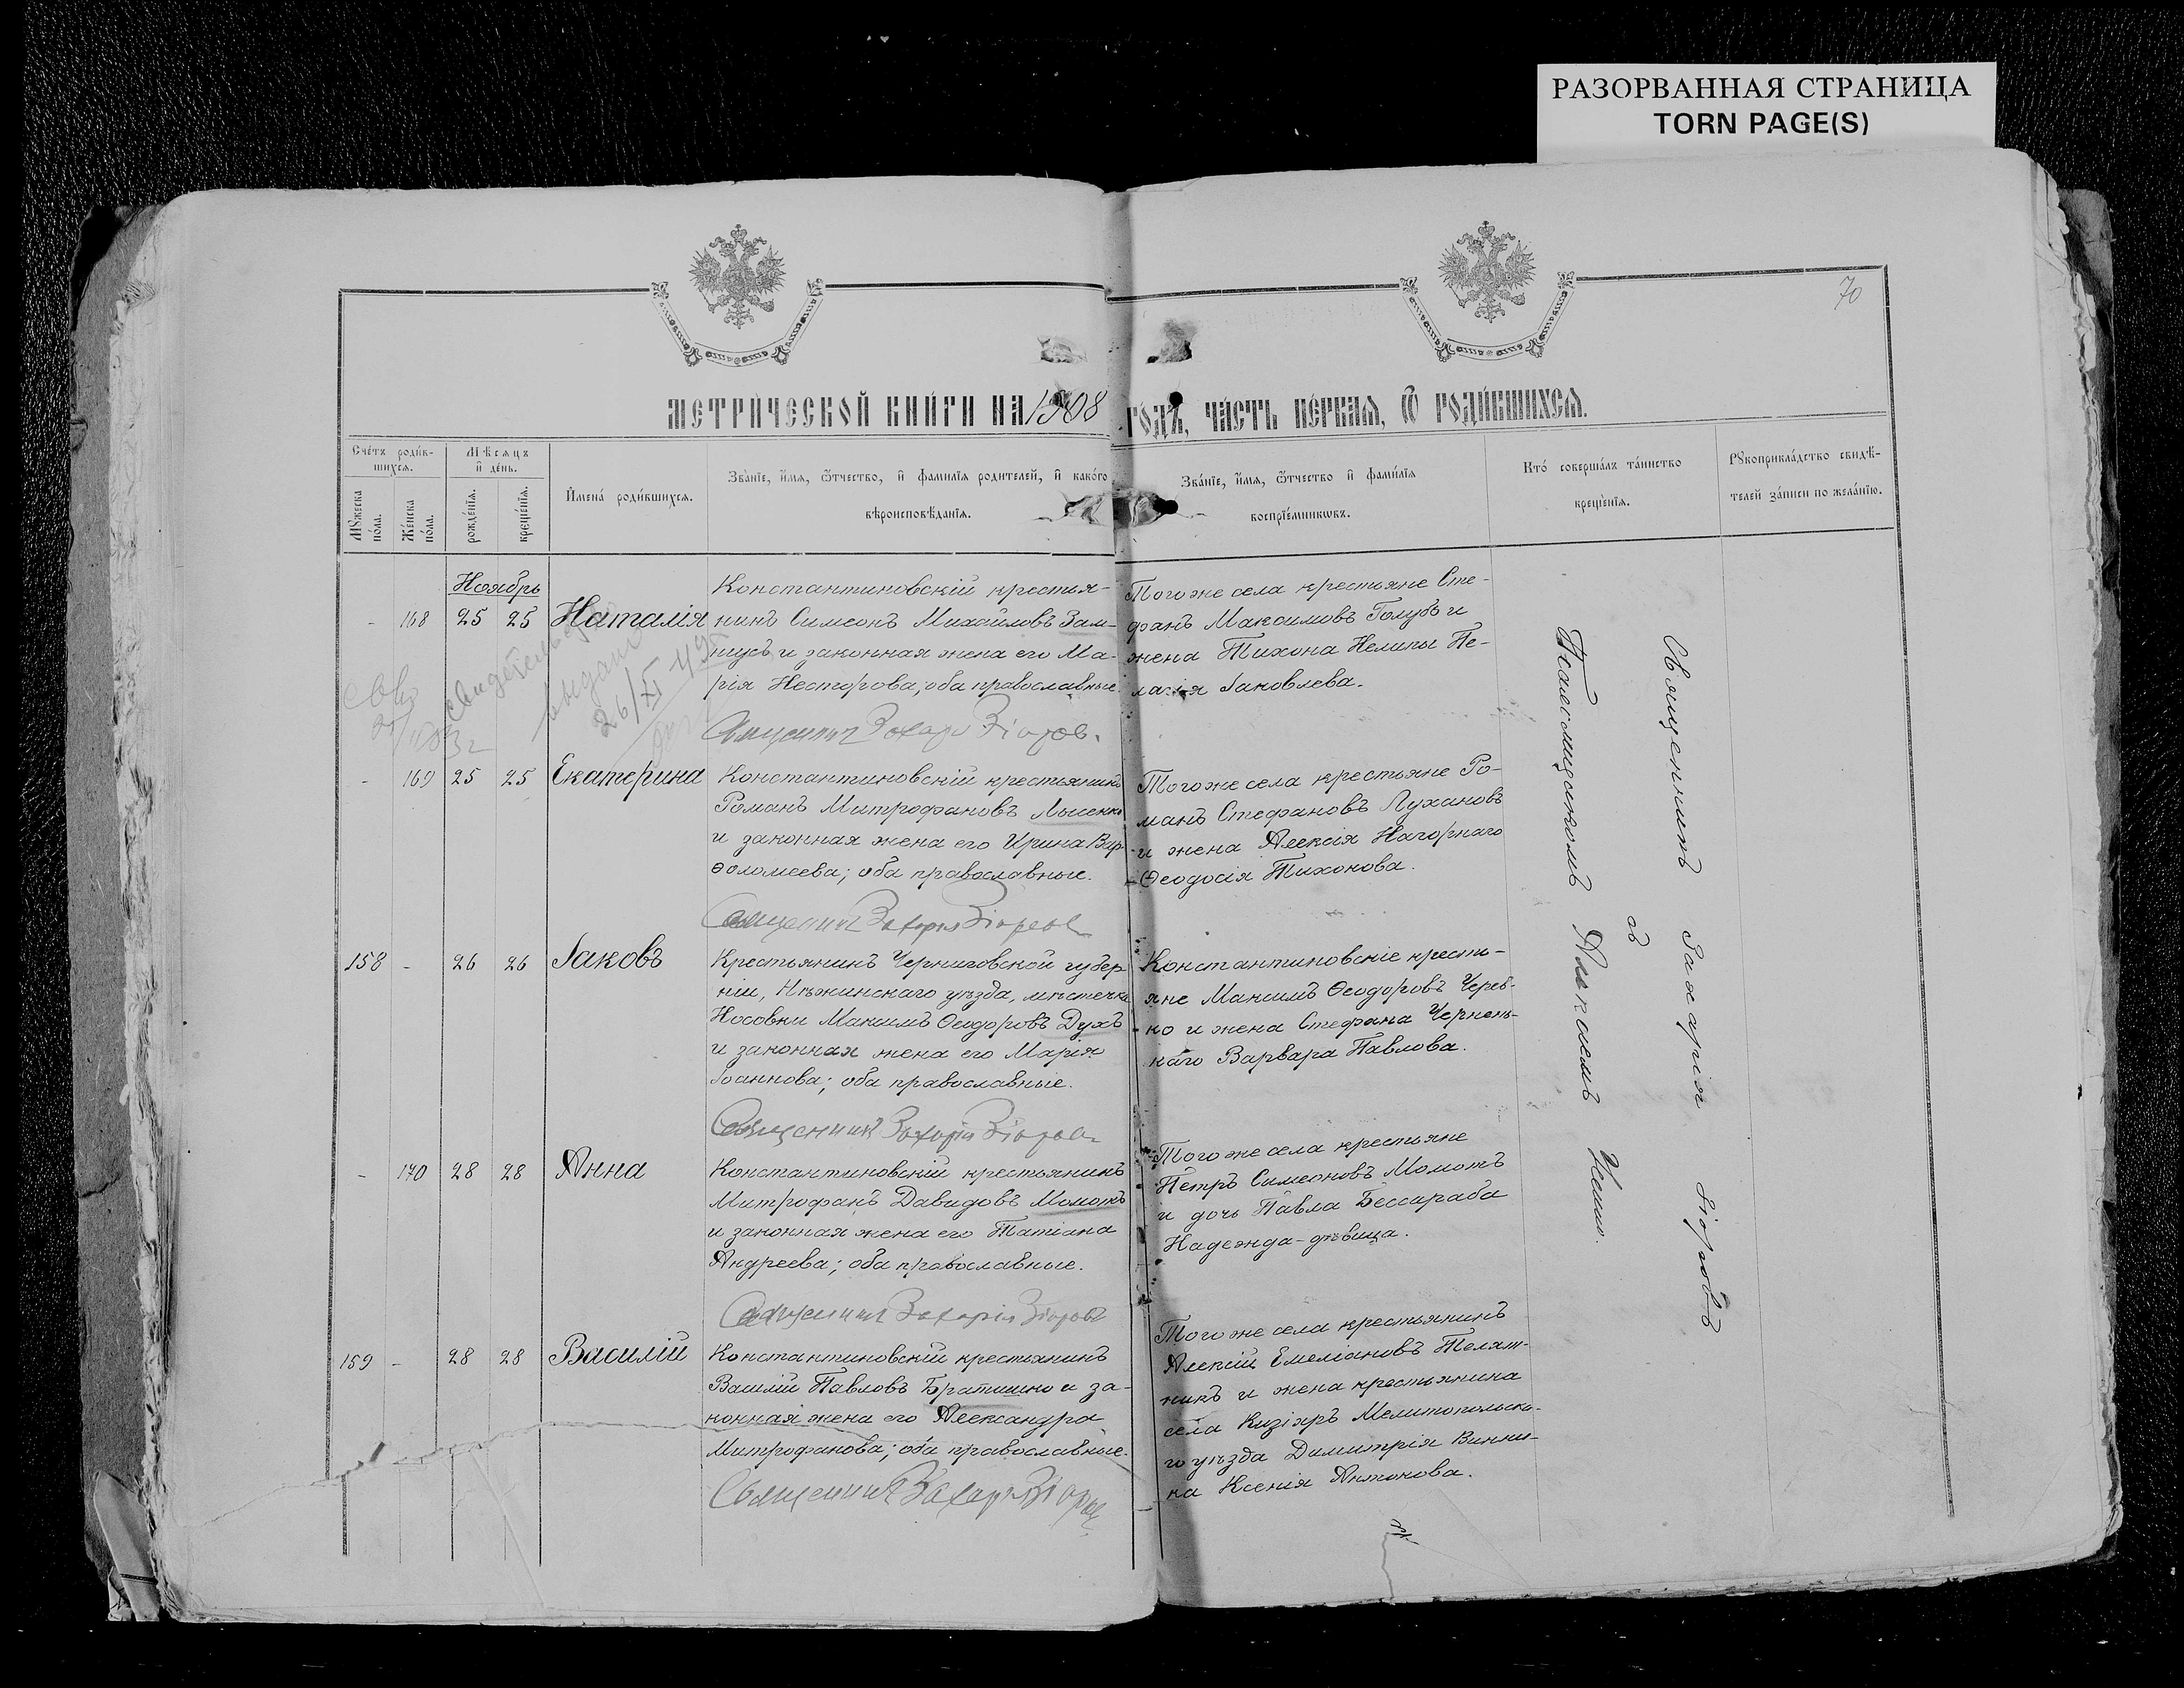 РАЗОРВАННАЯ СТРАНИЦА
TORN PAGE(S)
70
МЕТРИЧЕСКОЙ КНИГИ НА 1908 ГОДЪ, ЧАСТЬ ПЕРВАЯ, Ѿ РОДИВШИХСЯ.
Счетъ родив-
шихся.
Мѣсяцъ
и день.
Мꙋжеска
пола.
Женска
пола.
рожденія.
крещенія.
Имена родившихся.
Званіе, имя, ѿчество, и фамилія родителей, и какого
вѣроисповѣданія.
Званіе, имя, ѿчество и фамилія
воспріемниковъ.
Кто совершалъ таинство
крещенія.
Рꙋкоприкладство свидѣ-
телей записи по желанію.
Ноябрь
- 168 25 25 Наталія
Константиновскій крестья-
нинъ Симеонъ Михаиловъ Зам-
и законная жена его Ма-
рія Несторова; оба православные.
Священникъ Захарія Зіоровъ
Тогоже села крестьяне Сте-
фанъ Максимовъ Голубъ и
жена Тихона Нелипы Пе-
лагія Іаковлева.
- 169 25 25 Екатерина
Константиновскій крестьянинъ
Романъ Митрофановъ Лысенко
и законная жена его Ирина Вар-
ѳоломеева; оба православные.
Священникъ Захарія Зіоровъ
Тогоже села крестьяне Ро-
манъ Стефановъ Лухановъ
и жена Алексія Нагорнаго
Ѳеодосія Тихонова.
158 - 26 26 Іаковъ
Крестьянинъ Черниговской губер-
ніи, Нѣжинскаго уѣзда, мѣстечка
Носовки Максимъ Ѳеодоровъ Духъ
и законная жена его Марія
Іоаннова; оба православные.
Священникъ Захарія Зіоровъ
Константиновскіе кресть-
яне Максимъ Ѳеодоровъ Черев-
ко и жена Стефана Чернень-
каго Варвара Павлова.
- 170 28 28 Анна
Константиновскій крестьянинъ
Митрофанъ Давидовъ Момотъ
и законная жена его Татіана
Андреева; оба православные.
Священникъ Захарія Зіоровъ
Тогоже села крестьяне
Петръ Симеоновъ Момотъ
и дочь Павла Бессараба
Надежда-дѣвица.
159 - 28 28 Василій
Константиновскій крестьянинъ
Василій Павловъ Братишко и за-
конная жена его Александра
Митрофанова; оба православные.
Священникъ Захарія Зіоровъ
Тогоже села крестьянинъ
Алексій Емеліановъ Телят-
никъ и жена крестьянина
села Кизіяръ Мелитопольска-
го уѣзда Димитрія Винни-
ка Ксенія Антонова.
Священникъ Захарія Зіоровъ
съ
Псаломщикомъ